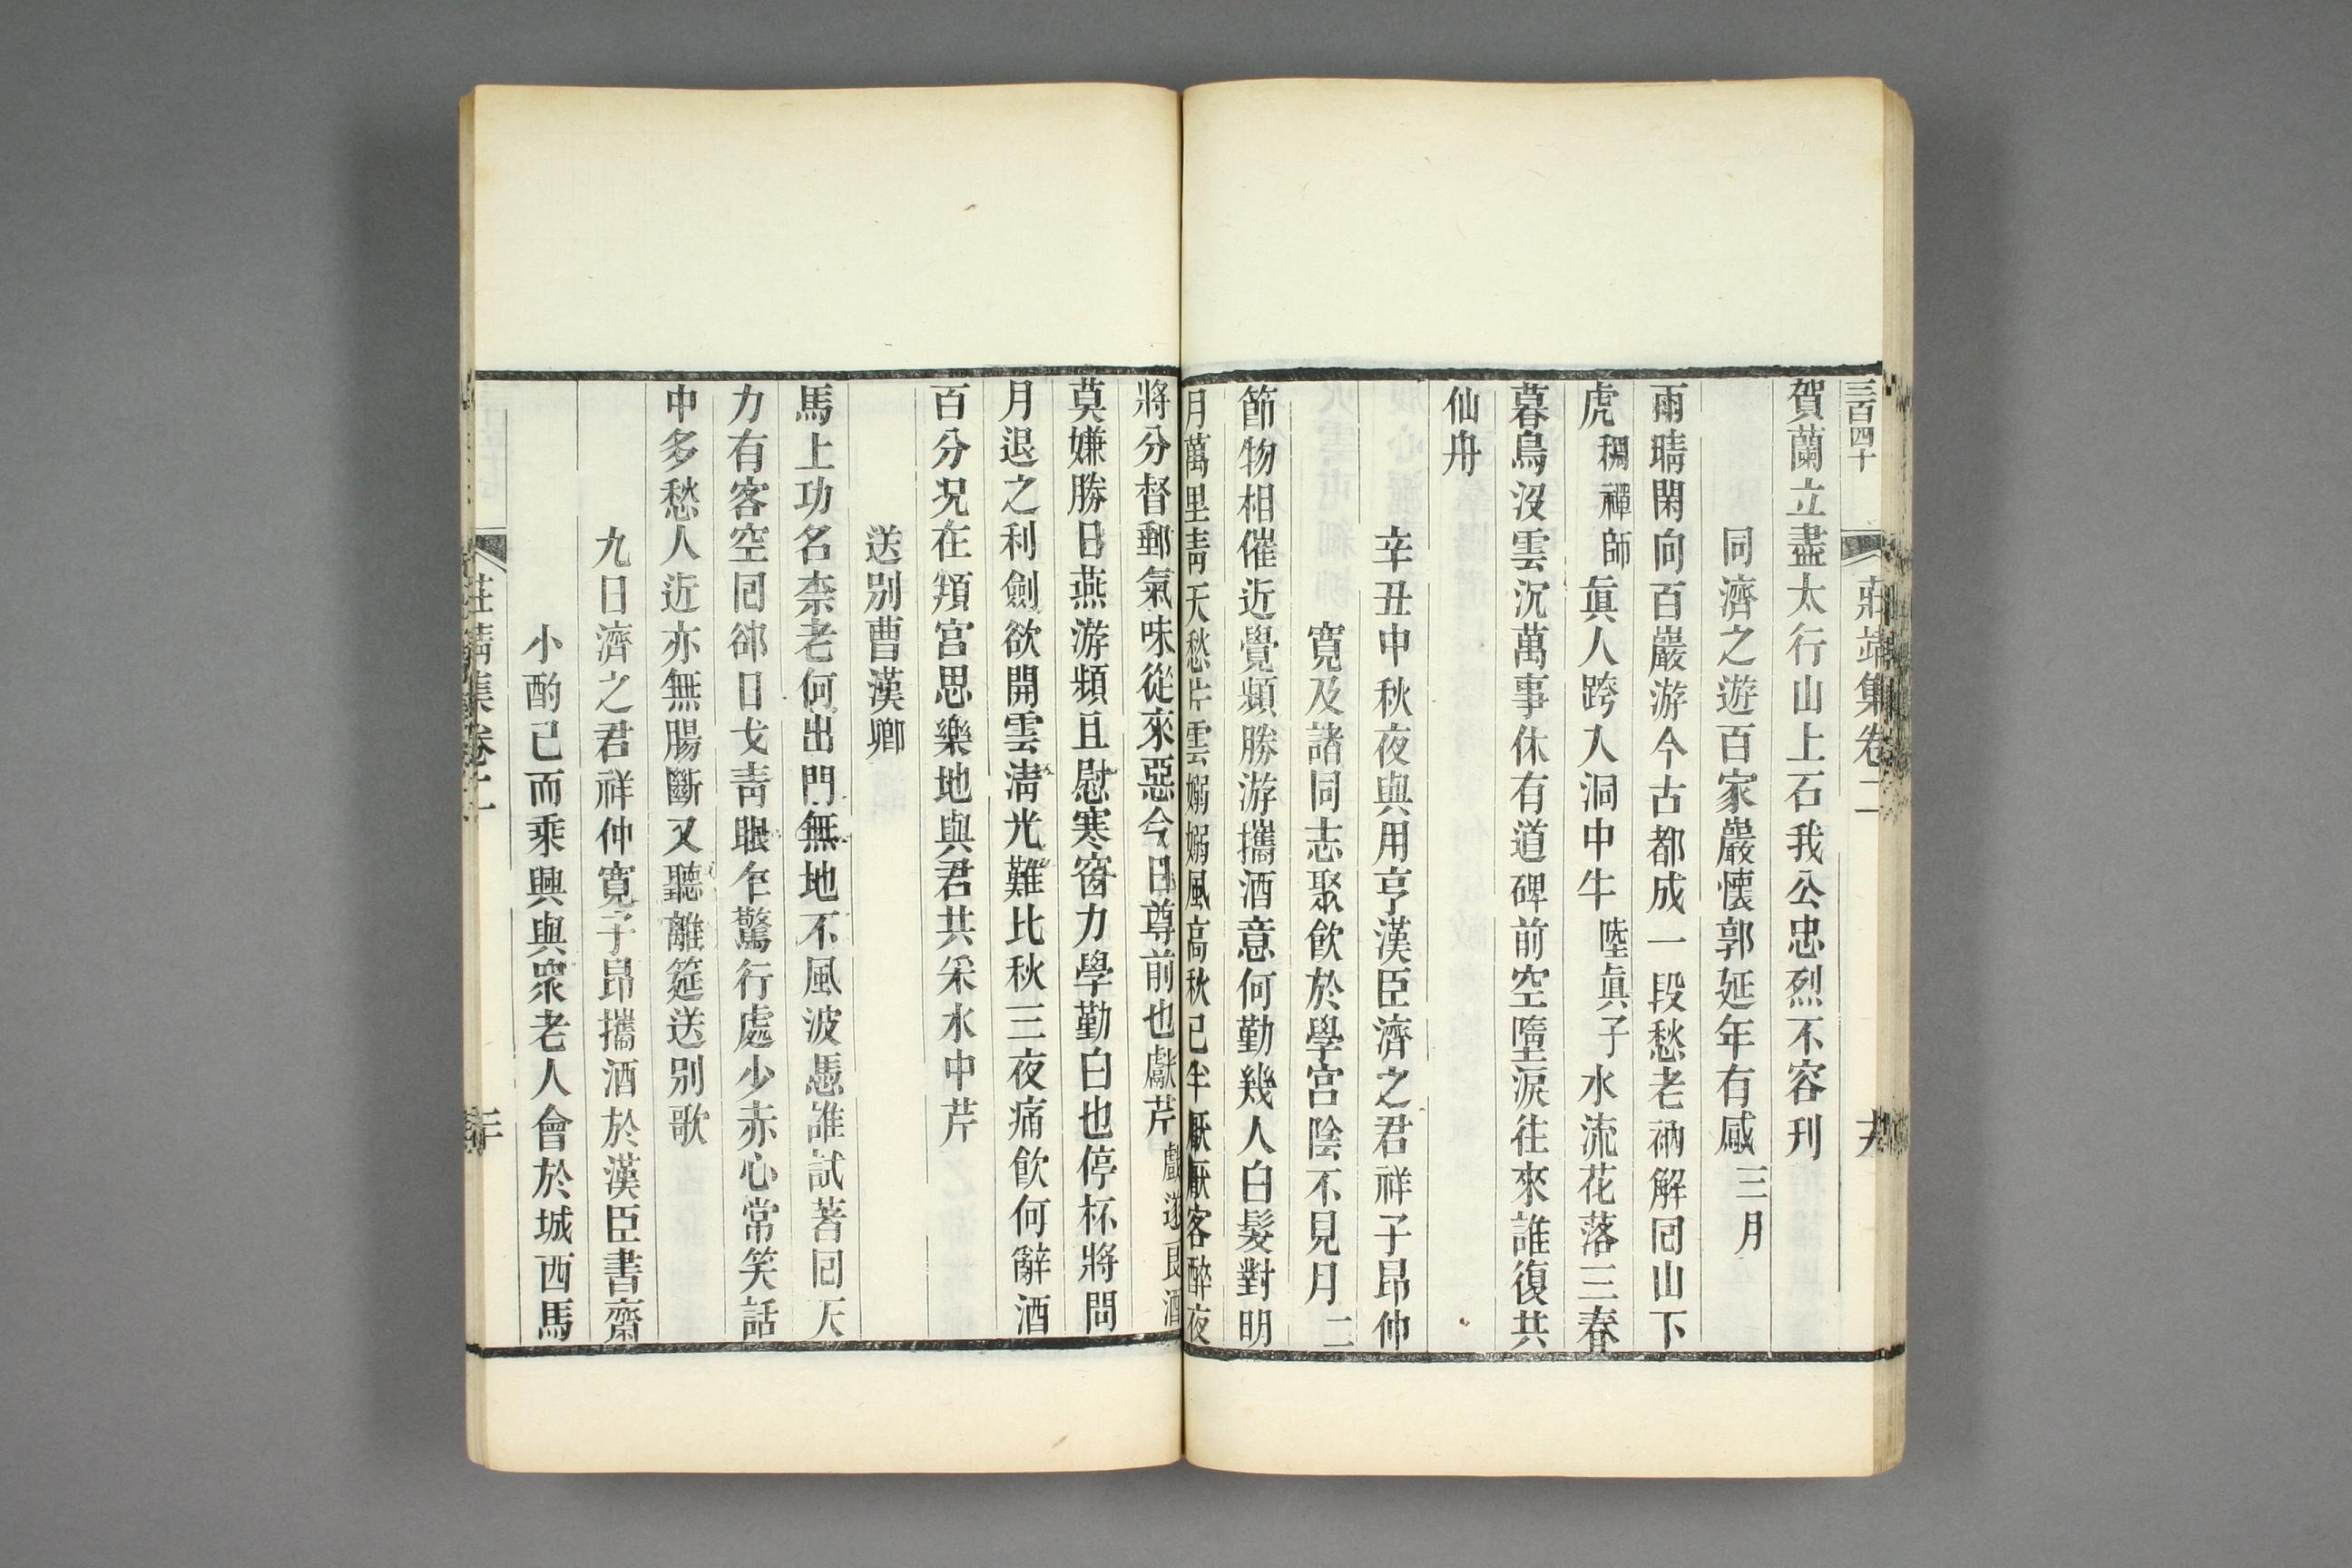 三百四十 莊靖集卷二 十九
賀蘭立盡太行山上石我公忠烈不容刊
同濟之遊百家巖懷郭延年有感三月
雨晴閑向百巖游今古都成一段愁老衲解囘山下
虎稠禪師眞人跨入洞中牛陸眞子水流花落三春
暮鳥沒雲沉萬事休有道碑前空墮淚往來誰復共
仙舟
辛丑中秋夜與用亨漢臣濟之君祥子昂仲
寬及諸同志聚飲於學宮陰不見月二
節物相催近覺頻勝游攜酒意何勤幾人白髮對明
月萬里靑天愁片雲嫋嫋風高秋已半厭厭客醉夜
將分督郵氣味從來惡今日尊前也獻芹戲遂良酒
莫嫌勝日燕游頻且慰寒窗力學勤白也停杯將問
月退之利劍欲開雲淸光難比秋三夜痛飲何辭酒
百分況在頖宮思樂地與君共采水中芹
送別曹漢卿
馬上功名奈老何出門無地不風波憑誰試著囘天
力有客空囘郤日戈靑眼乍驚行處少赤心常笑話
中多愁人近亦無腸斷又聽離筵送別歌
九日濟之君祥仲寬子昂攜酒於漢臣書齋
小酌已而乘興與眾老人會於城西馬
莊靖集卷二 二十